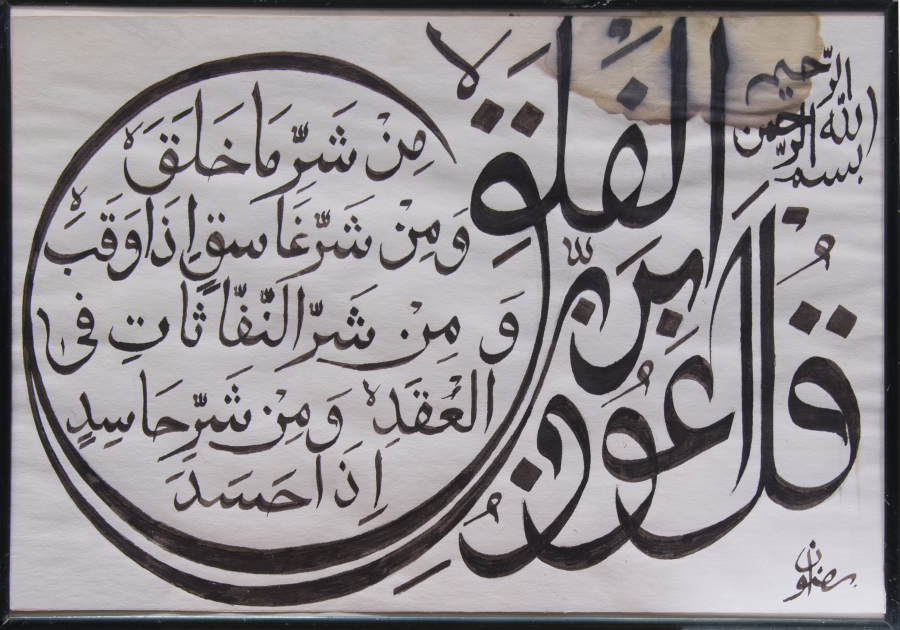 بسم الله الرحمن الرحيم
قُل اَعُوذُ بِرَبِّ الفَلَقِ
مِنْ شَرِّ مَا خَلَقَ
وَ مِنْ شَرِّ غَاسِقٍ اِذَا وَقَبَ
وَ مِنْ شَرِّ النَّفّاثَاتِ فى
العُقَدِ وَ مِنْ شَرِّ حَاسِدٍ
اِذَا حَسَدَ